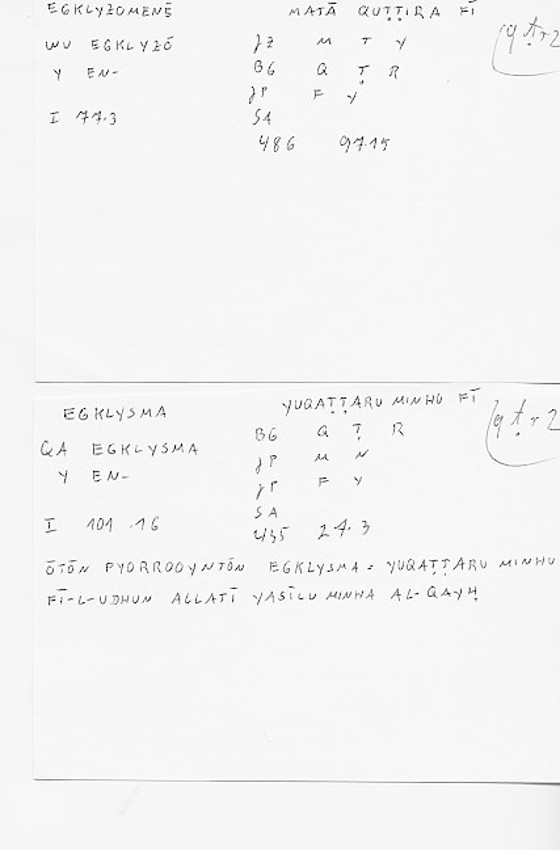 EGKLYZOMENĒ MATĀ QUṬṬIRA FĪ
WU EGKLYZŌ JZ M T Y (qṭr2
Y EN- BG Q Ṭ R
JP F Y
I 77.3 SA
486 97.15
EGKLYSMA YUQAṬṬARU MINHU FĪ
BG Q Ṭ R (qṭr2
QA EGKLYSMA JP M N
Y EN- JP F Y
SA
I 101.16 435 24.3
ŌTŌN PYORROOYNTŌN EGKLYSMA = YUQAṬṬARU MINHU
FĪ-L-UDHUN ALLATĪ YASĪLU MINHA AL-QAYḤ